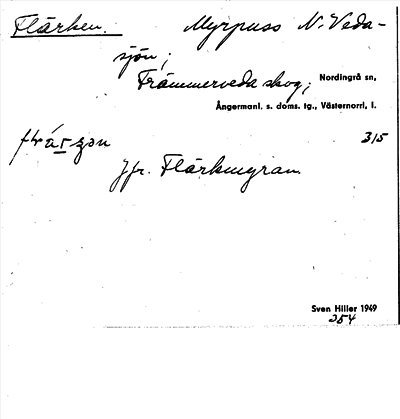 Flärken. Myrpuss N. Veda-
sjön;
Främmerveda skog, Nordingrå sn,
Ångermanl. s. doms. tg., Västernorrl. l.
315
Jfr. Flärkmyran
Sven Hiller 1949
354